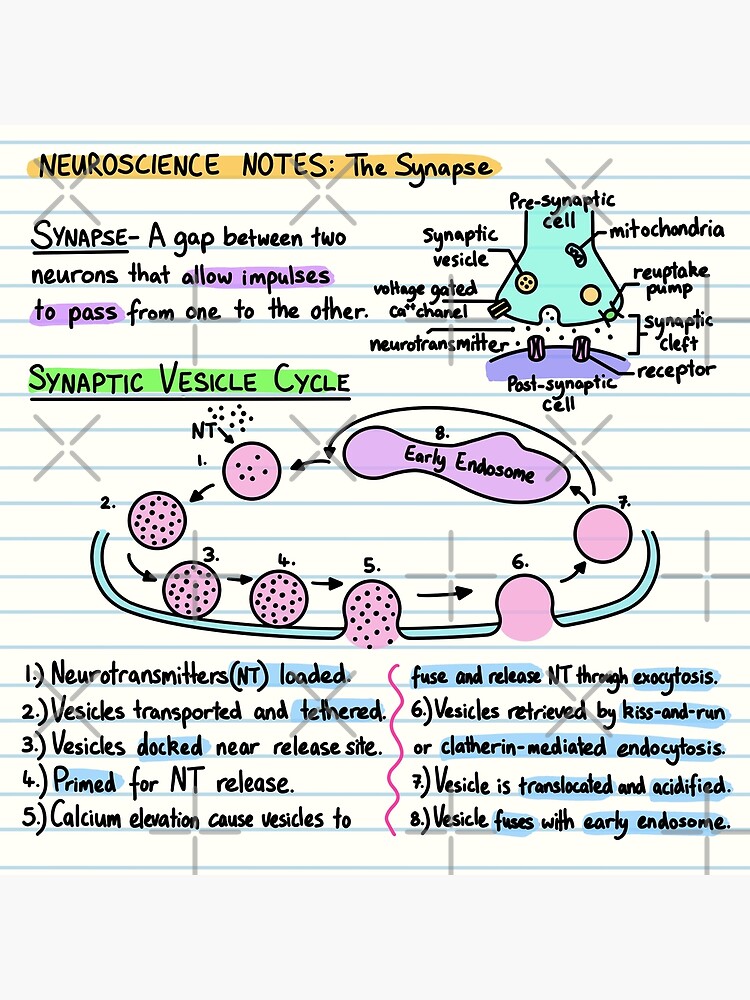 NEUROSCIENCE NOTES: The Synapse
SYNAPSE- A gap between two
neurons that allow impulses
to pass from one to the other.
Pre-synaptic
cell
mitochondria
Synaptic
vesicle
reuptake
pump
voltage gated
Ca++ chanel
Synaptic
cleft
neurotransmitter
receptor
Post-synaptic
cell
SYNAPTIC VESICLE CYCLE
NT
1.
2.
3.
4.
5.
6.
7.
8.
Early Endosome
1.) Neurotransmitters (NT) loaded.
2.) Vesicles transported and tethered.
3.) Vesicles docked near release site.
4.) Primed for NT release.
5.) Calcium elevation cause vesicles to
fuse and release NT through exocytosis.
6.) Vesicles retrieved by kiss-and-run
or clatherin-mediated endocytosis.
7.) Vesicle is translocated and acidified.
8.) Vesicle fuses with early endosome.